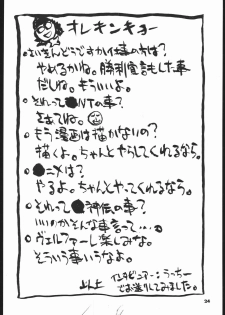 オレキンキョー
●さいきんどうですか仕事の方は?
やめるかね。勝利宣言もした事
だしね。もういいよ。
●それって●NTの事?
さあてね。
●もう漫画は描かないの?
描くよ。ちゃんとやらしてくれるなら。
●●ニメは?
やるよ。ちゃんとやってくれるなら。
●それって●神伝の事?
いいのかそんな事言って…。
●ヴェルファーレ楽しみね。
そういう事いうなよ。
以上 インタビュアー:うっちー
でお送りしてみました。
24